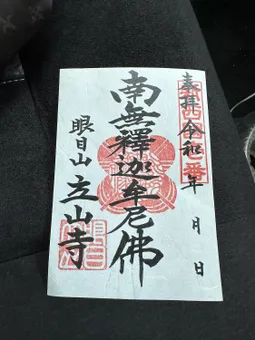 奉拝 令和 年 月 日
南無釋迦牟尼佛
眼目山 立山寺